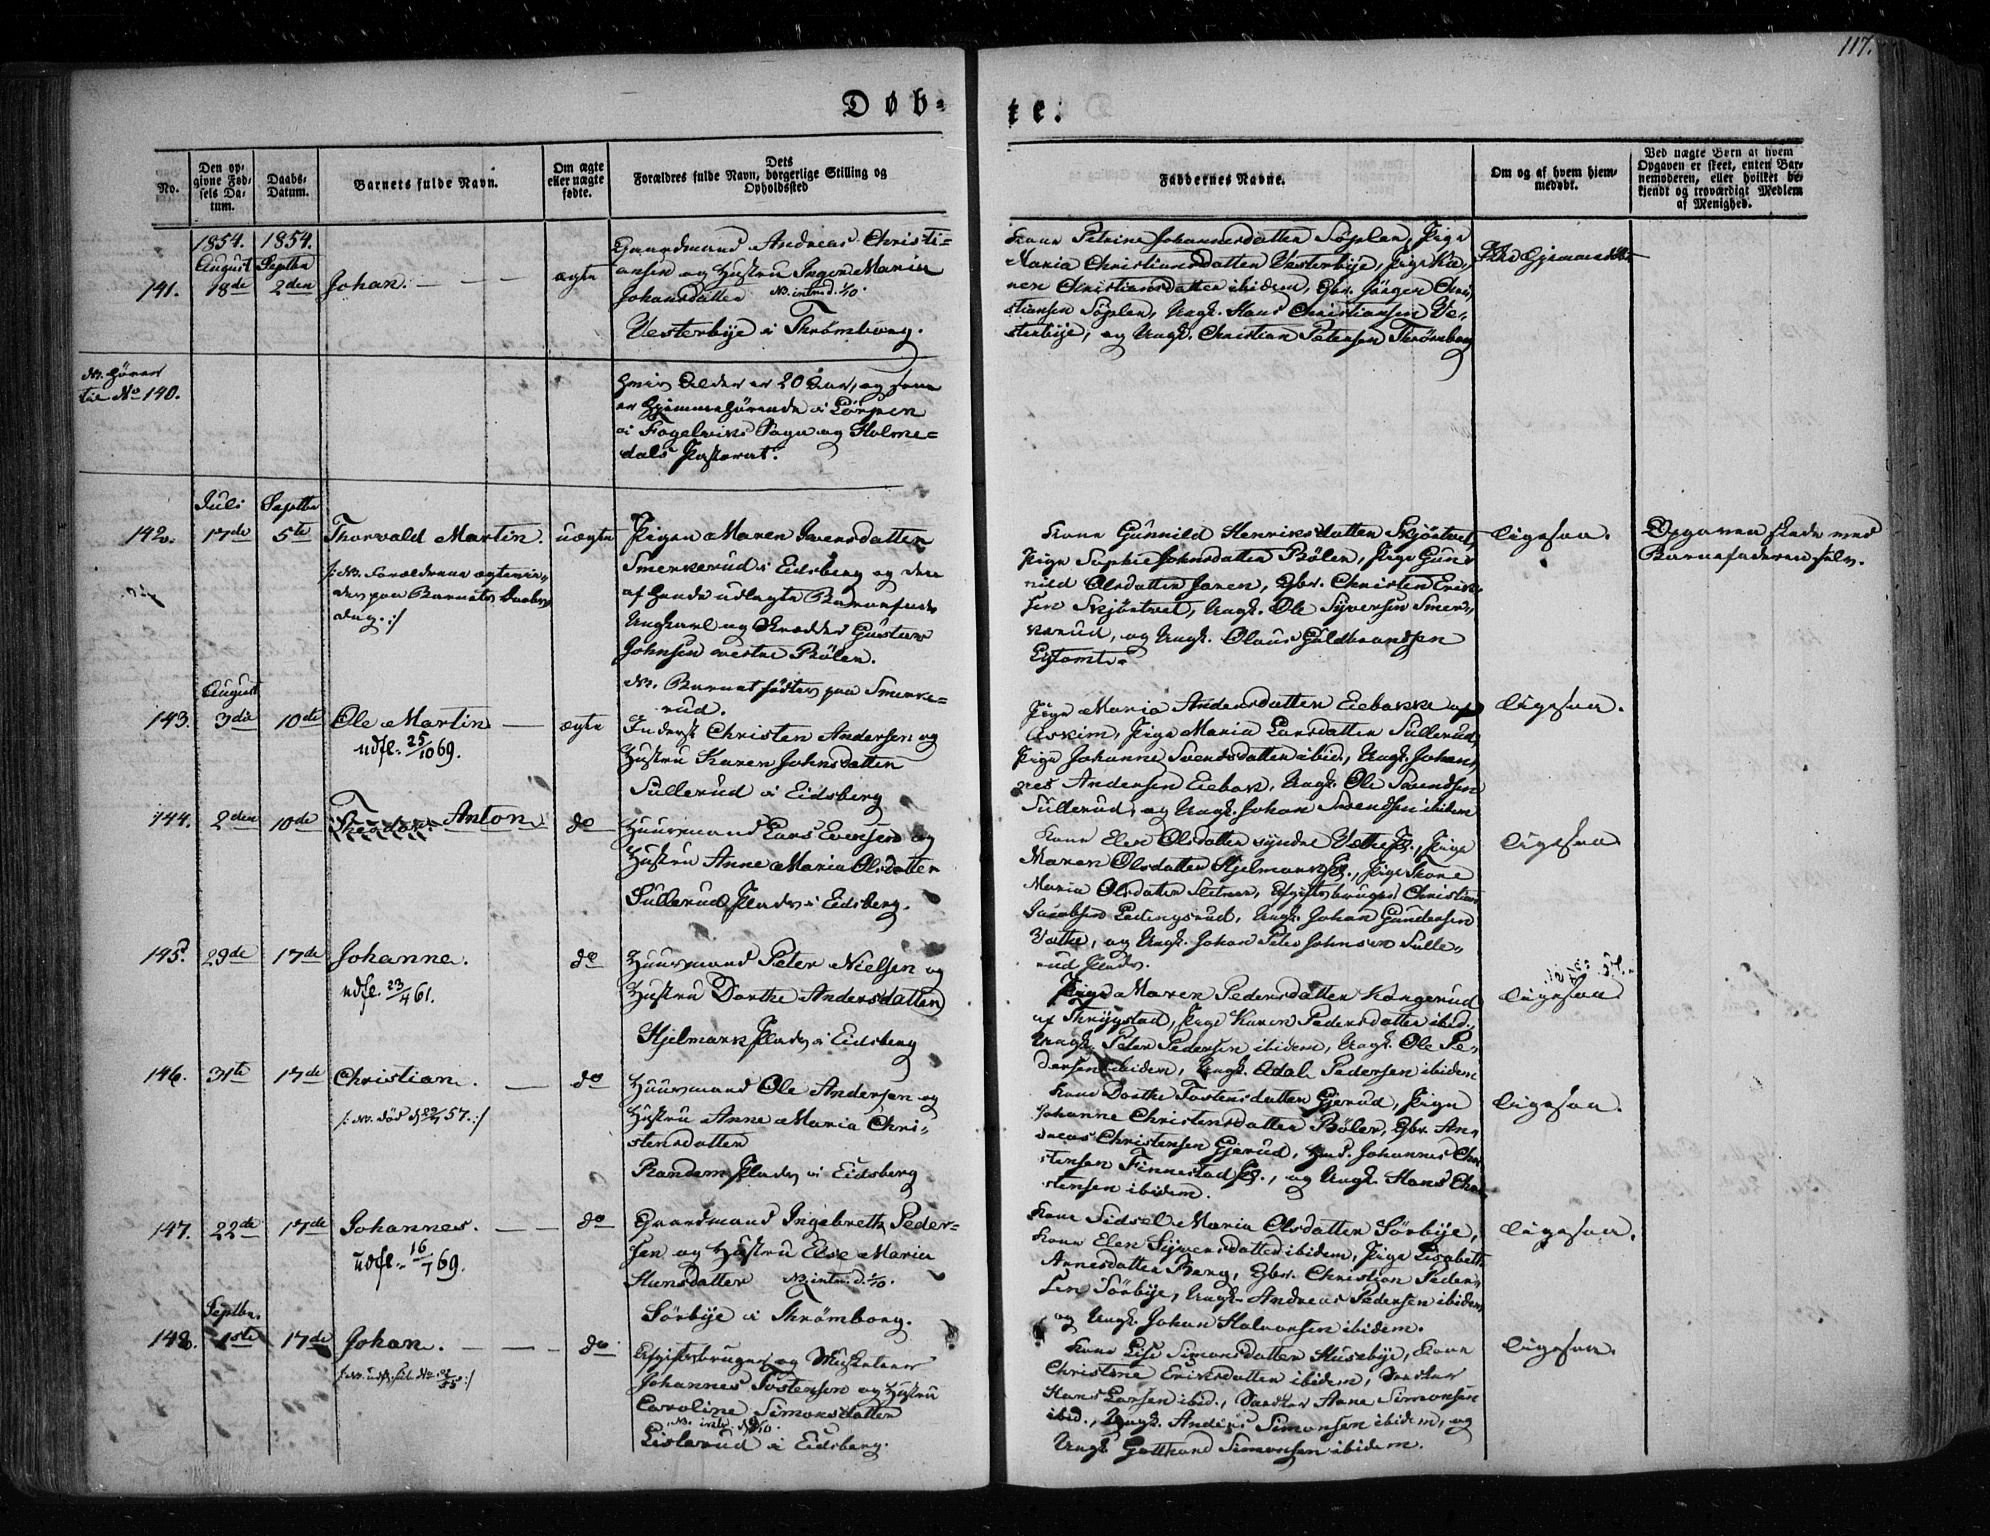 117.
Døb-
te.
No.
Den op-
givne Fød-
sels Da-
tum.
Daabs-
Datum.
Barnets fulde Navn.
Om ægte
eller uægte
fødte.
Dets
Forældres fulde Navn, borgerlige Stilling og
Opholdssted
Faddernes Navne.
Om og af hvem hjem-
medøbt.
Ved uægte Børn at hvem
Opgaven er skeet, enten Bar-
nemoderen, eller hvilket be-
kjendt og troværdigt Medlem
af Menighed.
1854. 1854.
August Septbr
141. 18de 2den Johan. ægte
Gaardmand Andreas Christi-
ansen og Hustru Inger Maria
Johansdatter NB. introd. 1/10.
Vesterbye i Thrømborg.
Kone Petrine Johannesdatter Søplen, Pige
Maria Christiansdatter Vesterbye, Pige Ka-
ren Christiansdatter ibidem, Gbr. Jørgen Chri-
stiansen Søplen, Ungk. Hans Christiansen Ve-
sterbye, og Ungk. Christian Petersen Thrømborg
NB. hører
til No 140.
hvis Alder er 20 Aar, og som
er hjemmehørende i
i Fogelviks Sogn og Holme-
dals Pastorat.
Juli Septbr
142. 17de 5te Thorvald Martin. uægte
/: NB. Forældrene ægtevie-
des paa Barnets Daabs-
dag. :/
Pigen Maren Iversdatter
Smerkerud i Eidsberg og den
af hende udlagte Barnefader
Ungkarl og Skrædder Gustav
Johnsen vestre Bølen.
NB. Barnet fødtes paa Smerke-
rud.
Kone Gunnild Henriksdatter Skjøtvet,
Pige Sophie Johnsdatter Bølen, Pige Gun-
nild Olsdatter Jaren, Gbr. Christen Erik-
sen Skjøtvet, Ungk. Ole Syversen Smer-
kerud, og Ungk. Olaus Guldbrandsen
Ligesaa.
Opgaven skede med
Barnefaderen selv.
August
143. 3die 10de Ole Martin ægte
udfl. 25/10 69.
Inderst Christen Andersen og
Hustru Karen Johnsdatter
Sullerud i Eidsberg
Pige Maria Andersdatter Eiebakke af
Askim, Pige Maria Larsdatter Sullerud,
Pige Johanne Svendsdatter ibid., Ungk. Johan-
nes Andersen Eiebak, Ungk. Ole Svendsen
Sullerud, og Ungk. Johan Svendsen ibidem
Ligesaa.
144. 2den 10de Theodor Anton do
Huusmand Lars Evensen og
Hustru Anne Maria Olsdatter
Sullerud Plads i Eidsberg.
Kone Elen Olsdatter syndre Vathe Pl., Pige
Maren Olsdatter Hjelmark Pl., Pige Thone
Maria Olsdatter, Christian
Jacobsen Ledingsrud, Ungk. Johan Gundersen
Vathe, og Ungk. Johan Peter Johnsen Sulle-
rud Plads.
Ligesaa
145. 29de 17de Johanne. do
udfl. 23/4 61.
Huusmand Peter Nielsen og
Hustru Dorthe Andersdatter
Hjelmark Plads i Eidsberg
Pige Maren Pedersdatter Kongerud
af Thrygstad, Pige Karen Pedersdatter ibid.,
Ungk. Peter Pedersen ibidem, Ungk. Ole Pe-
dersen ibidem, Ungk. Adole Pedersen ibidem
Ligesaa
146. 31te 17de Christian. do
Huusmand Ole Andersen og
Hustru Anne Maria Chri-
stensdatter
Randem Plads i Eidsberg
Kone Dorthe Tostensdatter Gjerud, Pige
Johanne Christensdatter Bølen, Gbr. An-
dreas Christensen Gjerud, Hmd. Johannes Chri-
stensen Finnestad Pl., og Ungk. Hans Chri-
stensen ibidem.
Ligesaa.
147. 22de 17de Johannes. do
udfl. 16/1 69.
Gaardmand Ingebreth Peder-
sen og Hustru Else Maria
Hansdatter NB. intr. d. 1/10.
Sørbye i Thrømborg.
Kone Sidsel Maria Olsdatter Sørbye,
Kone Elen Syversdatter ibidem, Pige Lisabeth
Arnesdatter Berg, Gbr. Christian Peder-
sen Sørbye, Ungk. Andreas Pedersen ibidem,
og Ungk. Johan Halvorsen ibidem.
Ligesaa.
Septbr.
148. 1ste 17de Johan. do
Afgiftsbruger og Musketeer
Johannes Tostensen og Hustru
Caroline Simonsdatter
Lislerud i Eidsberg.
Kone Lise Simonsdatter Husebye, Kone
Christine Eriksdatter ibidem,
Hans Larsen ibid., Anne Simonsen
ibid., Ungk. Anders Simonsen ibidem, og
Ungk. Gotthard Simonsen ibidem.
Ligesaa.